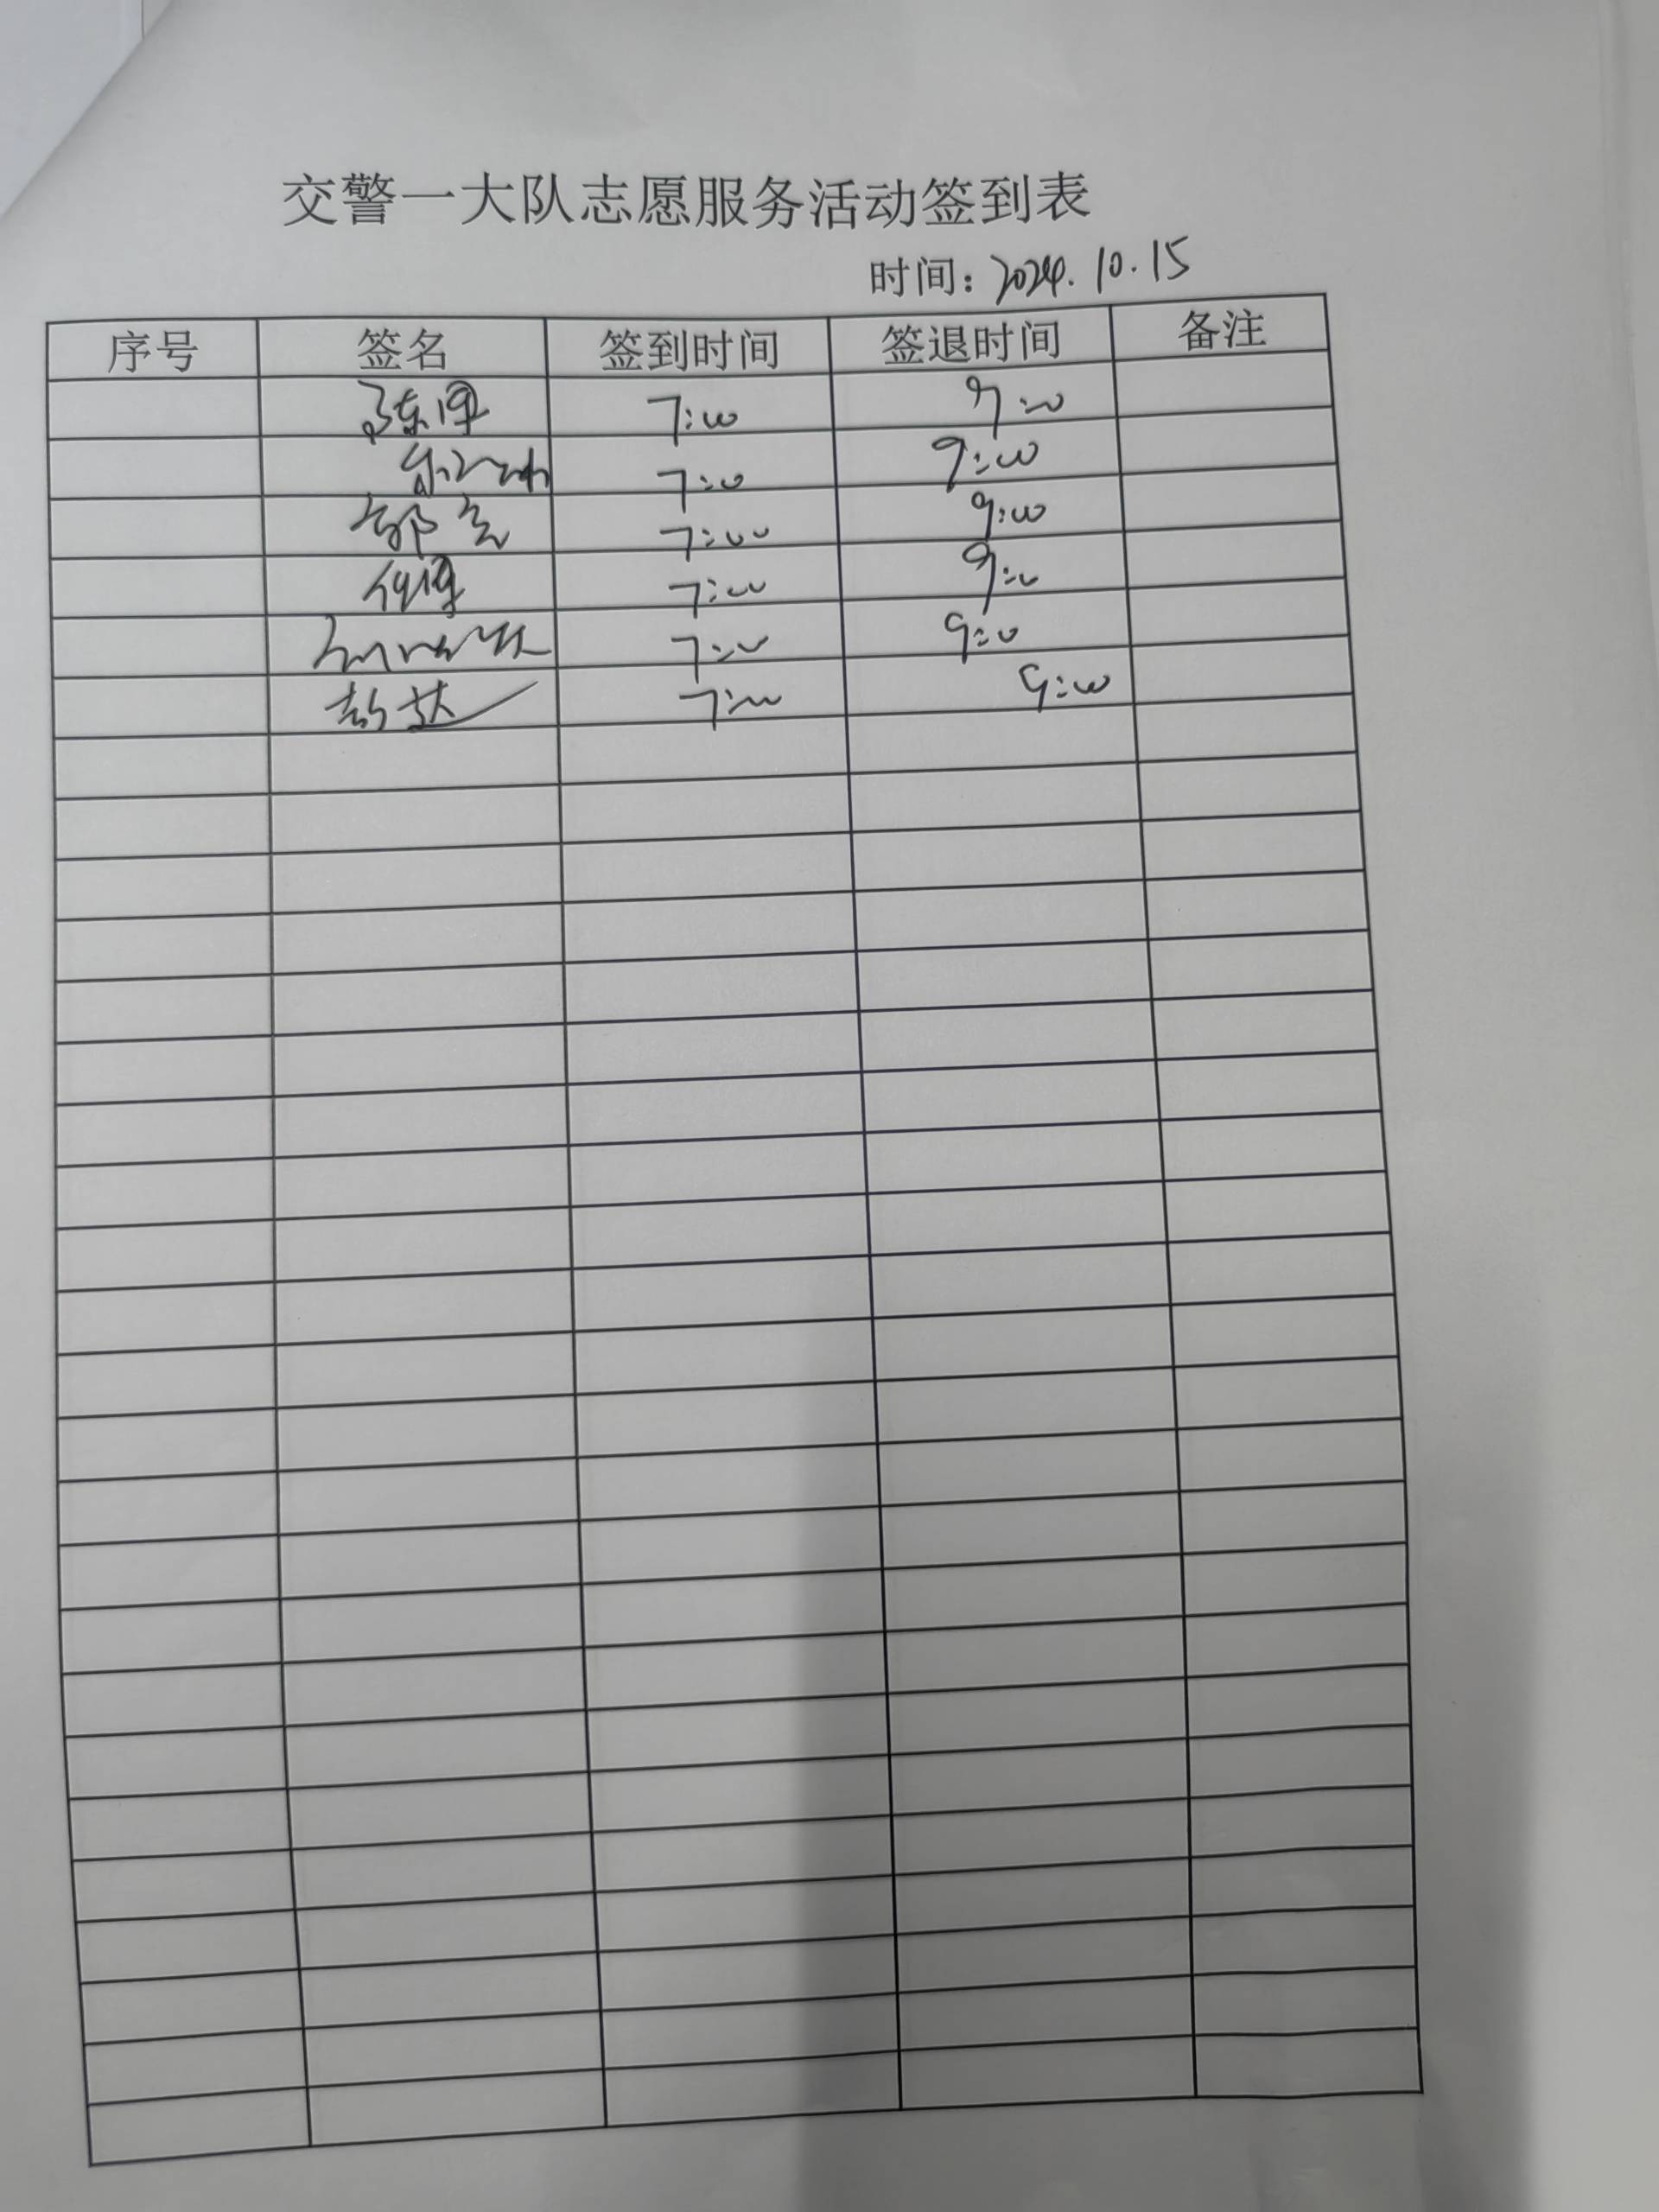 交警一大队志愿服务活动签到表
时间：2024.10.15
序号 签名 签到时间 签退时间 备注
7:00 9:00
7:00 9:00
郭 7:00 9:00
7:00 9:00
7:00 9:00
彭达 7:00 9:00